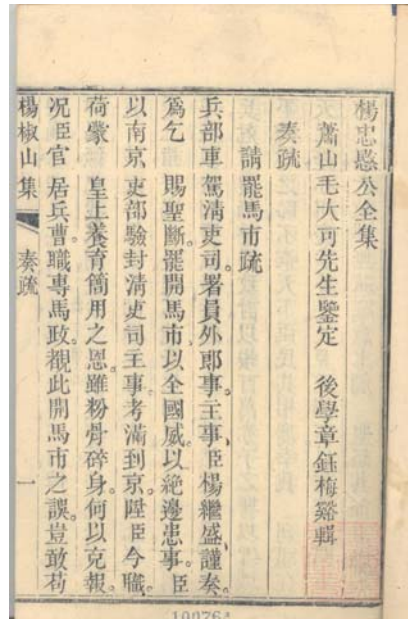 楊忠愍公全集
蕭山毛大可先生鑒定　後學章鈺梅谿輯
奏疏
請罷馬市疏
兵部車駕淸吏司署員外郎事主事、臣楊繼盛謹奏。
爲乞　賜聖斷。罷開馬市以全國威。以絶邊患事。臣
以南京吏部驗封淸吏司主事。考滿到京。陞臣今職。
荷蒙　皇上養育簡用之恩。雖粉骨碎身。何以克報。
况臣官　居兵曹。職專馬政。覩此開馬市之誤。豈敢苟
楊椒山集　奏疏　一
10076